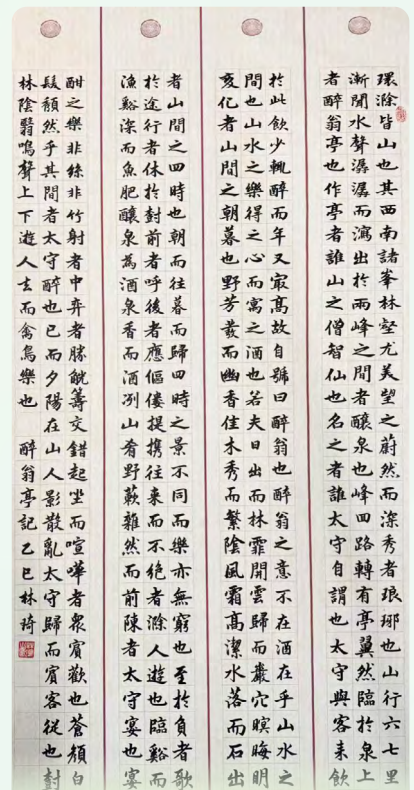 環滁皆山也其西南諸峯林壑尤美望之蔚然而深秀者琅琊也山行六七里
漸聞水聲潺潺而瀉出於兩峰之間者釀泉也峰回路轉有亭翼然臨於泉上
者醉翁亭也作亭者誰山之僧智仙也名之者誰太守自謂也太守與客来飲
於此飲少輒醉而年又最高故自號曰醉翁也醉翁之意不在酒在乎山水之
間也山水之樂得之心而寓之酒也若夫日出而林霏開雲歸而巖穴暝晦明
變化者山間之朝暮也野芳發而幽香佳木秀而繁陰風霜高潔水落而石出
者山間之四時也朝而往暮而歸四時之景不同而樂亦無窮也至於負者歌
於途行者休於樹前者呼後者應傴僂提携往来而不絶者滁人遊也臨谿而
漁谿深而魚肥釀泉為酒泉香而酒冽山肴野蔌雜然而前陳者太守宴也宴
酣之樂非絲非竹射者中弈者勝觥籌交錯起坐而喧嘩者衆賓歡也蒼顏白
髮頹然乎其間者太守醉也已而夕陽在山人影散亂太守歸而賓客從也樹
林陰翳鳴聲上下遊人去而禽鳥樂也 醉翁亭記乙巳林琦